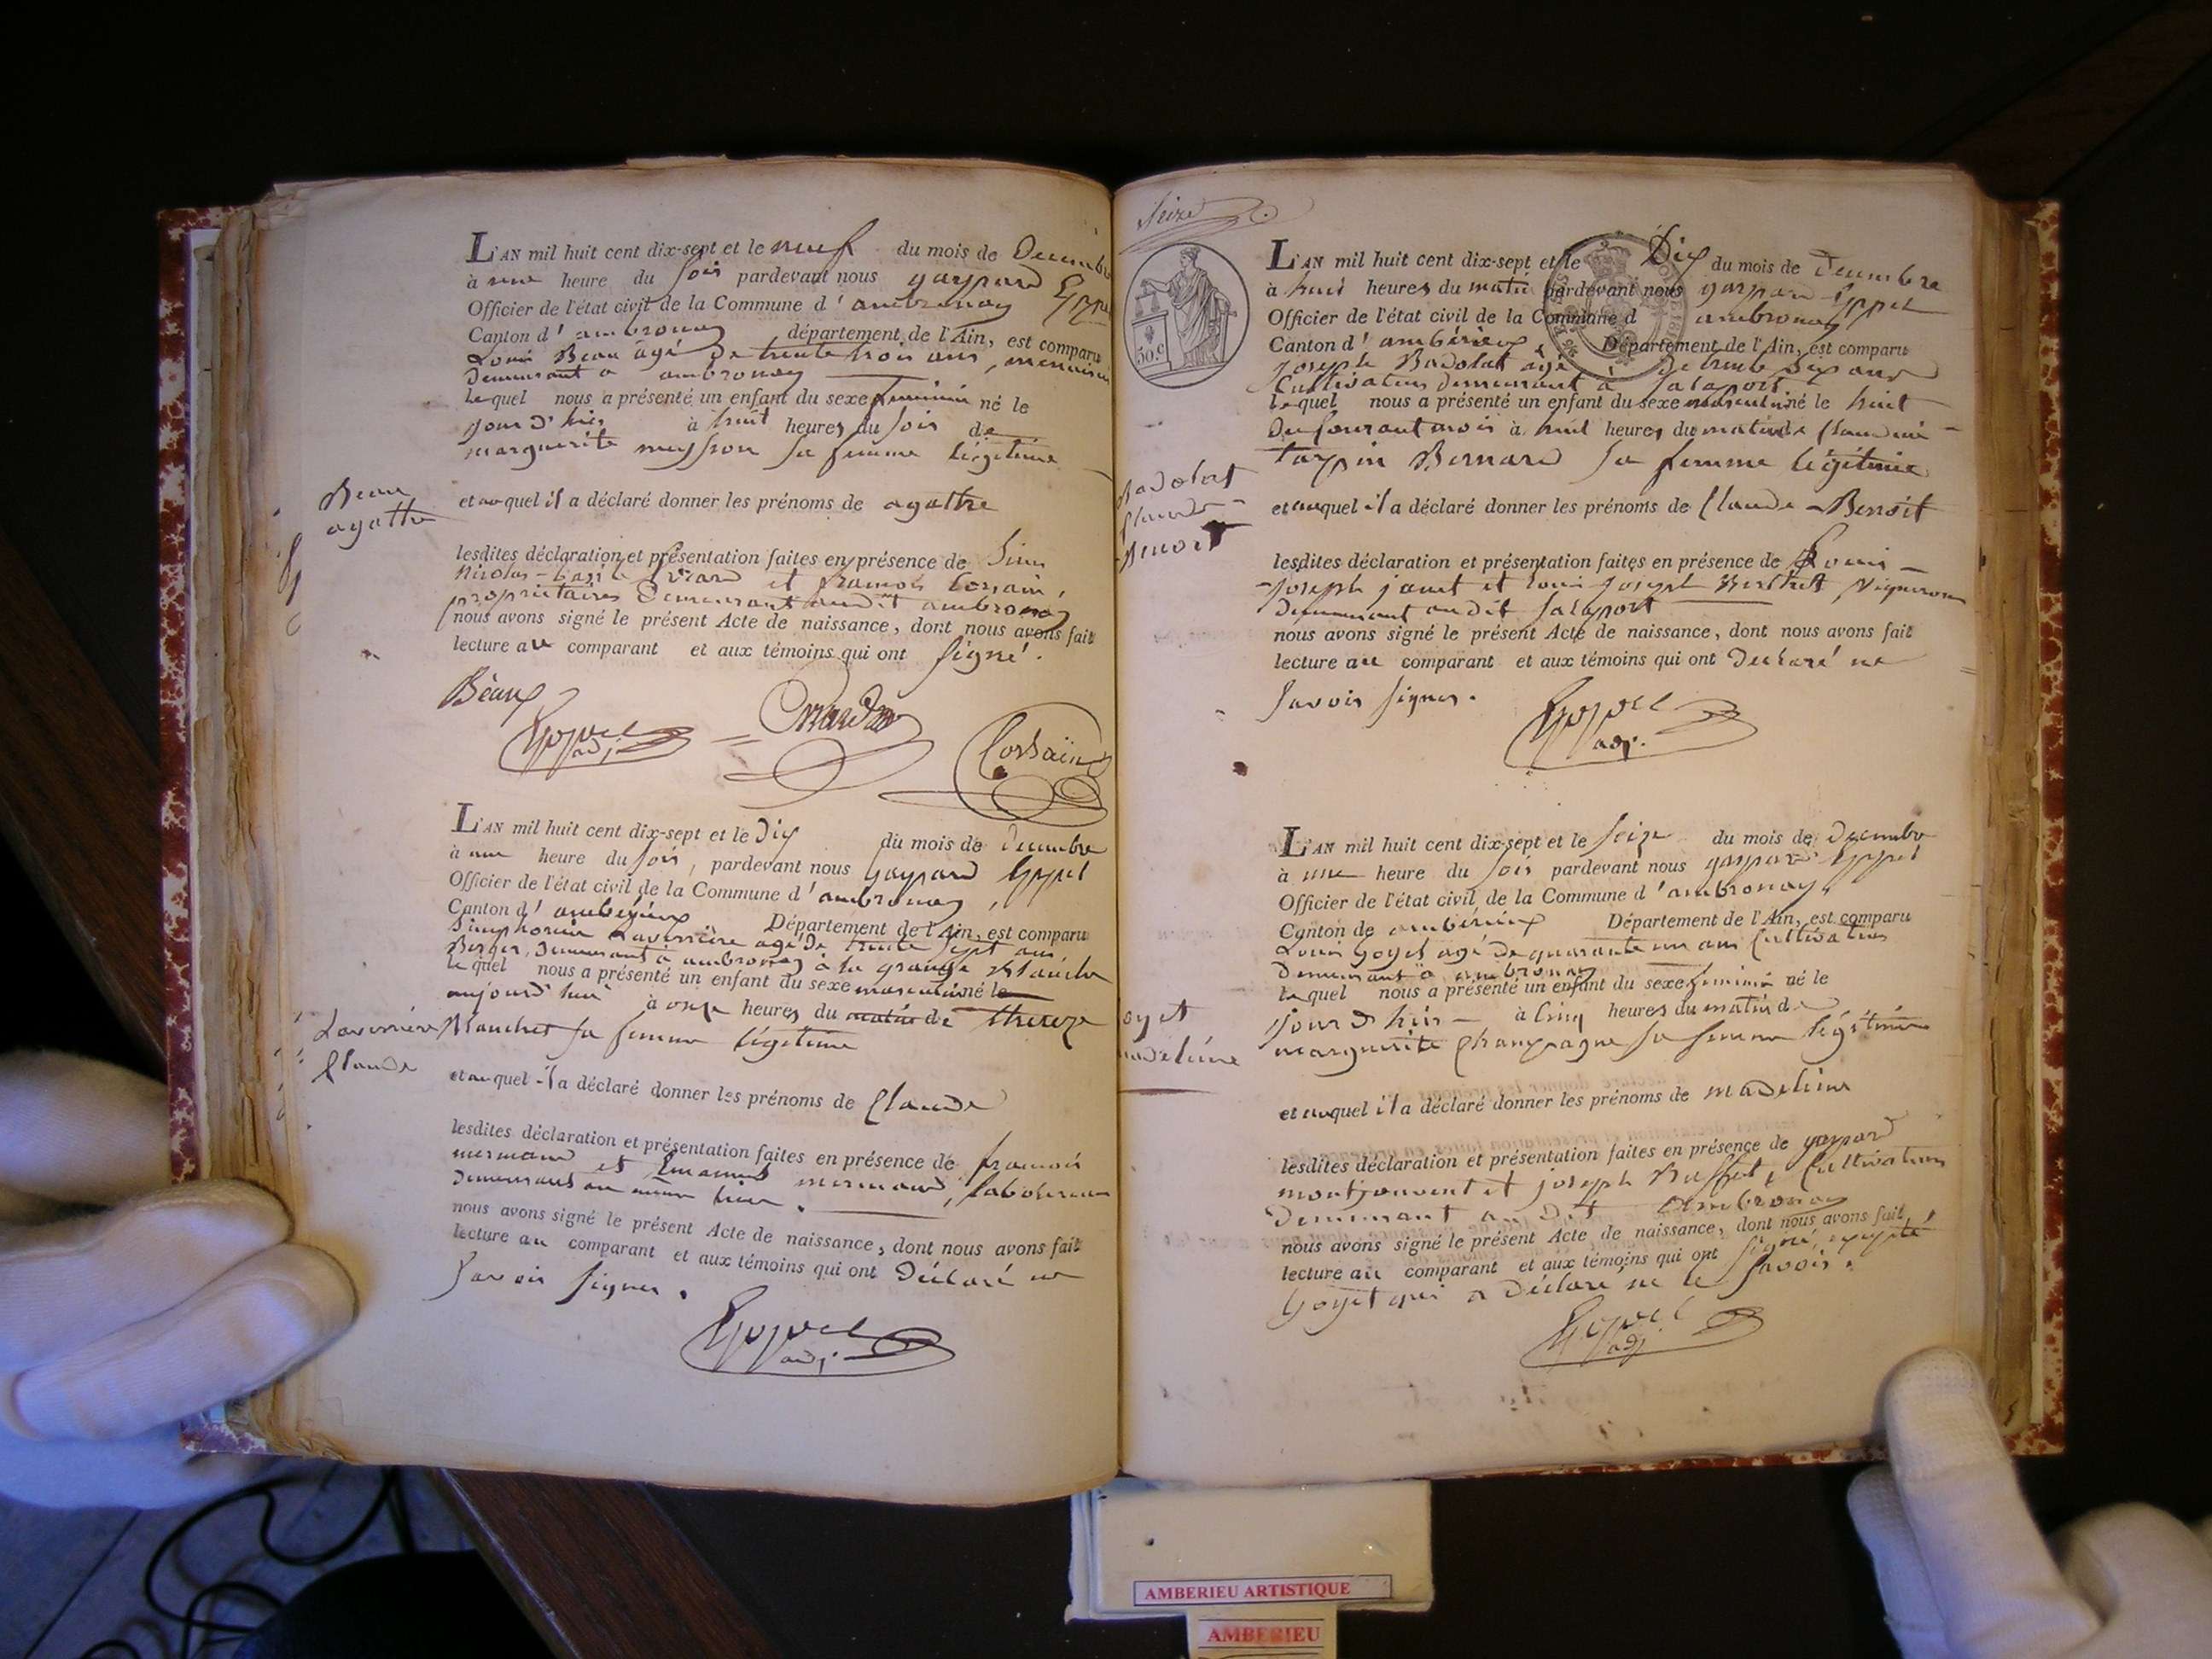 L'AN mil huit cent dix-sept et le neuf du mois de Decembre
à une heure du soir pardevant nous gaspard Eyppel
Officier de l'état civil de la Commune d'ambronay
Canton d'ambronay département de l'Ain, est comparu
Louis Beau âgé de trente trois ans, menuisier
demeurant a ambronay
lequel nous a présenté un enfant du sexe feminin né le
jour d'hier à huit heures du soir de
marguerite sa femme légitime
Beau
agathe
et auquel il a déclaré donner les prénoms de agathe
lesdites déclaration et présentation faites en présence de
et françois Corsain,
propriétaires demeurant audit ambronay
nous avons signé le présent Acte de naissance, dont nous avons fait
lecture au comparant et aux témoins qui ont signé.
Beau
Eyppel
adj.
Corsain
L'AN mil huit cent dix-sept et le Dix du mois de Decembre
à une heure du soir, pardevant nous Gaspard Eyppel
Officier de l'état civil de la Commune d'ambronay,
Canton d'ambérieux Département de l'Ain, est comparu
Simphorien Laverrière agé de trente sept ans
Berger, demeurant à ambronay à la grange Blanche
lequel nous a présenté un enfant du sexe masculin né le
aujourd'hui à onze heures du matin de thereze
Blanchet sa femme légitime
Laverrière
Claude
et auquel il a déclaré donner les prénoms de Claude
lesdites déclaration et présentation faites en présence de francois
mermand et mermand, laboureurs
demeurant au même lieu.
nous avons signé le présent Acte de naissance, dont nous avons fait
lecture au comparant et aux témoins qui ont Déclaré ne
savoir signer.
Eyppel
adj.
seize
50.c
L'AN mil huit cent dix-sept et le Dix du mois de Decembre
à huit heures du matin pardevant nous gaspard Eyppel
Officier de l'état civil de la Commune d ambronay
Canton d'ambérieux, Département de l'Ain, est comparu
joseph Badolat agé de trente six ans
Cultivateur demeurant à salaport
lequel nous a présenté un enfant du sexe masculin né le huit
du courant mois à huit heures du matin de Claudine
tarpin Bernard sa femme légitime
Badolat
Claude
Benoit
et auquel il a déclaré donner les prénoms de Claude Benoit
lesdites déclaration et présentation faites en présence de Louis
joseph janet et louis joseph Berthet, Vignerons
demeurant audit salaport
nous avons signé le présent Acte de naissance, dont nous avons fait
lecture au comparant et aux témoins qui ont Declaré ne
savoir signer.
Eyppel
adj.
L'AN mil huit cent dix-sept et le seize du mois de decembre
à une heure du soir pardevant nous gaspard Eyppel
Officier de l'état civil de la Commune d'ambronay,
Canton de ambérieux Département de l'Ain, est comparu
Louis Goyet agé de quarante un ans Cultivateur
demeurant a ambronay
lequel nous a présenté un enfant du sexe feminin né le
jour d'hier à cinq heures du matin de
marguerite Champagne sa femme légitime
oyet
madeleine
et auquel il a déclaré donner les prénoms de madeleine
lesdites déclaration et présentation faites en présence de gaspard
montjouvent et joseph Buffet, Cultivateurs
demeurant audit Ambronay
nous avons signé le présent Acte de naissance, dont nous avons fait
lecture au comparant et aux témoins qui ont signé, excepté
Goyet qui a déclaré ne le savoir.
Eyppel
adj
AMBERIEU ARTISTIQUE
AMBERIEU